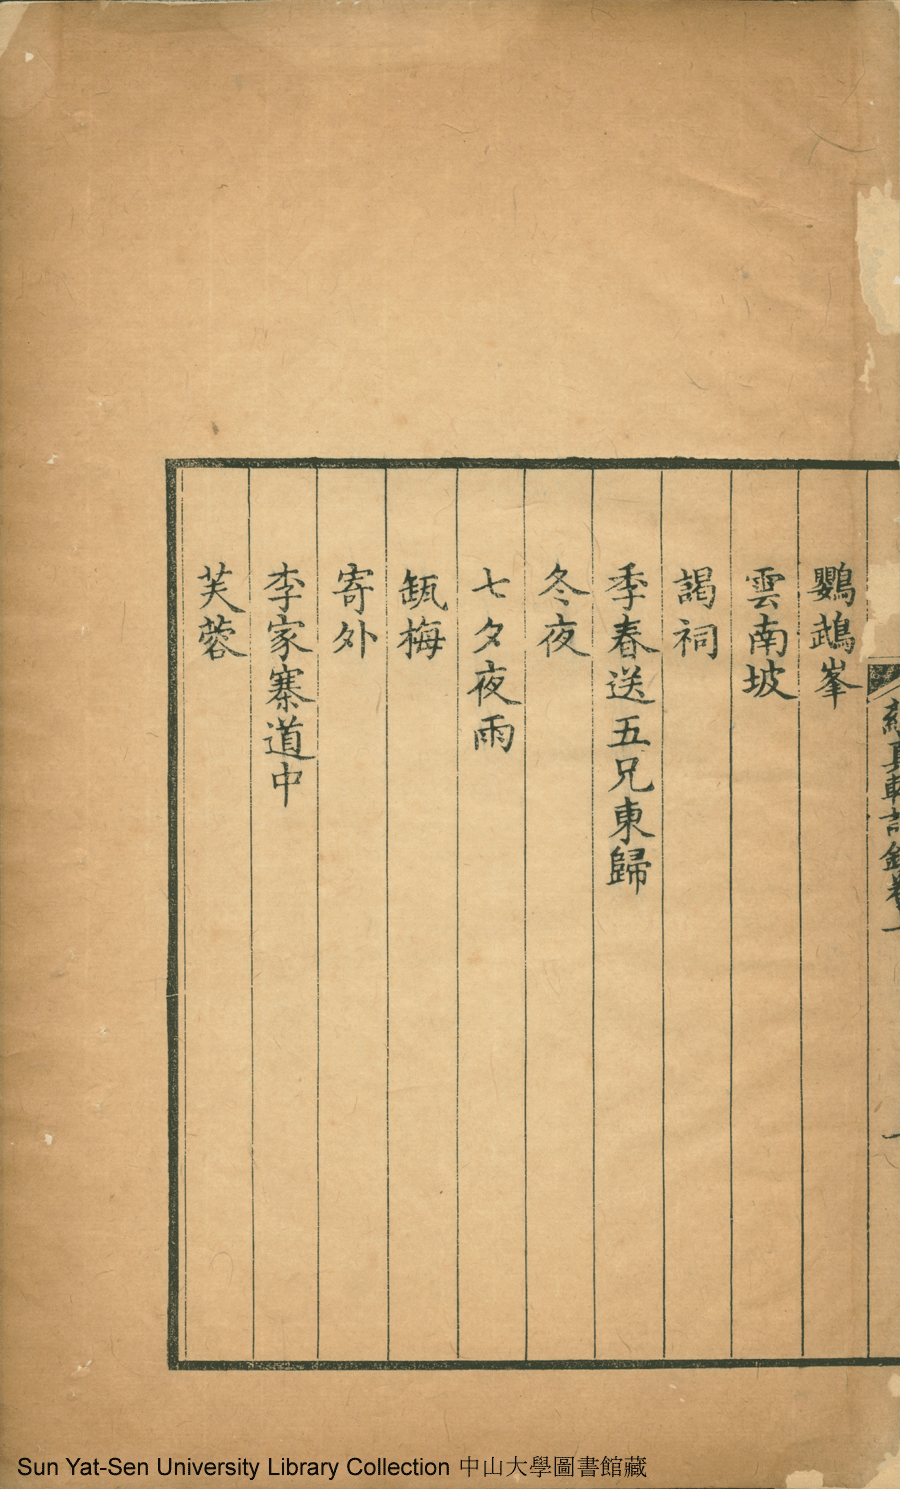 鸚鵡峯
雲南坡
謁祠
季春送五兄東歸
冬夜
七夕夜雨
缻梅
寄外
李家寨道中
芙蓉
Sun Yat-Sen University Library Collection 中山大學圖書館藏